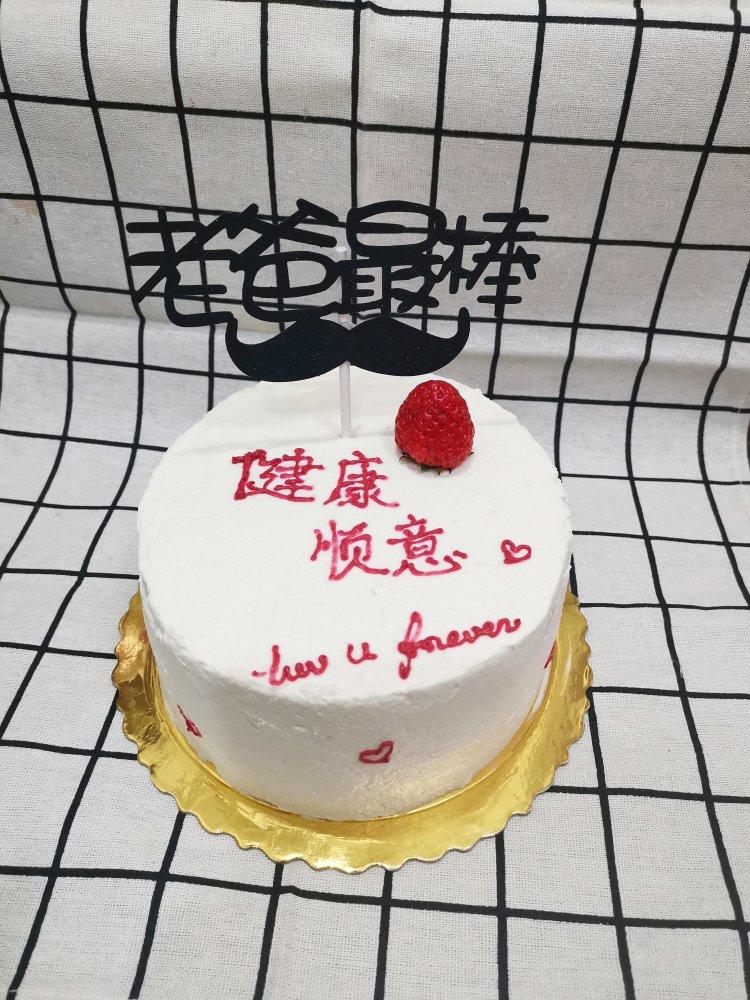 老爸最棒
健康
顺意
luv u forever